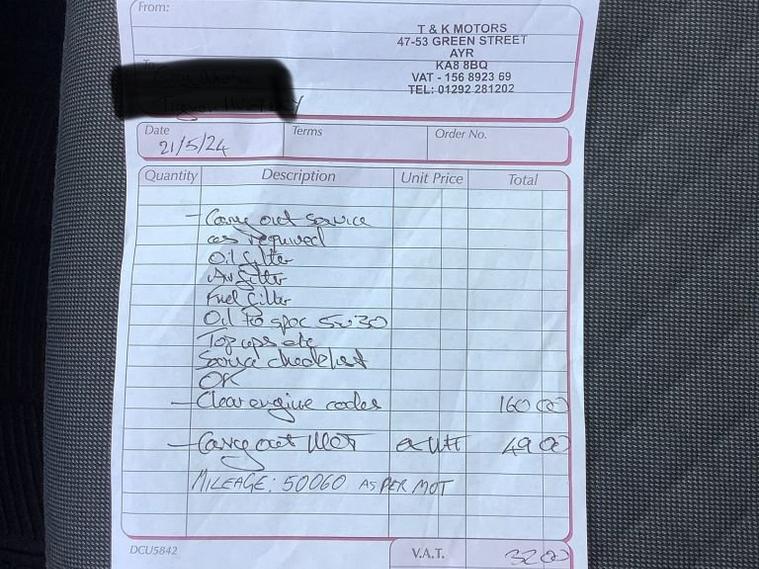 From:
T & K MOTORS
47-53 GREEN STREET
AYR
KA8 8BQ
VAT - 156 8923 69
TEL: 01292 281202
Date Terms Order No.
21/5/24
Quantity Description Unit Price Total
- Carry out service
as required
Oil filter
Air filter
Fuel filter
Oil to spec 5w30
Top ups etc
Service checklist
OK
- Clear engine codes 160 00
- Carry out MOT 49 00
MILEAGE: 50060 AS PER MOT
DCU5842 V.A.T. 32 00